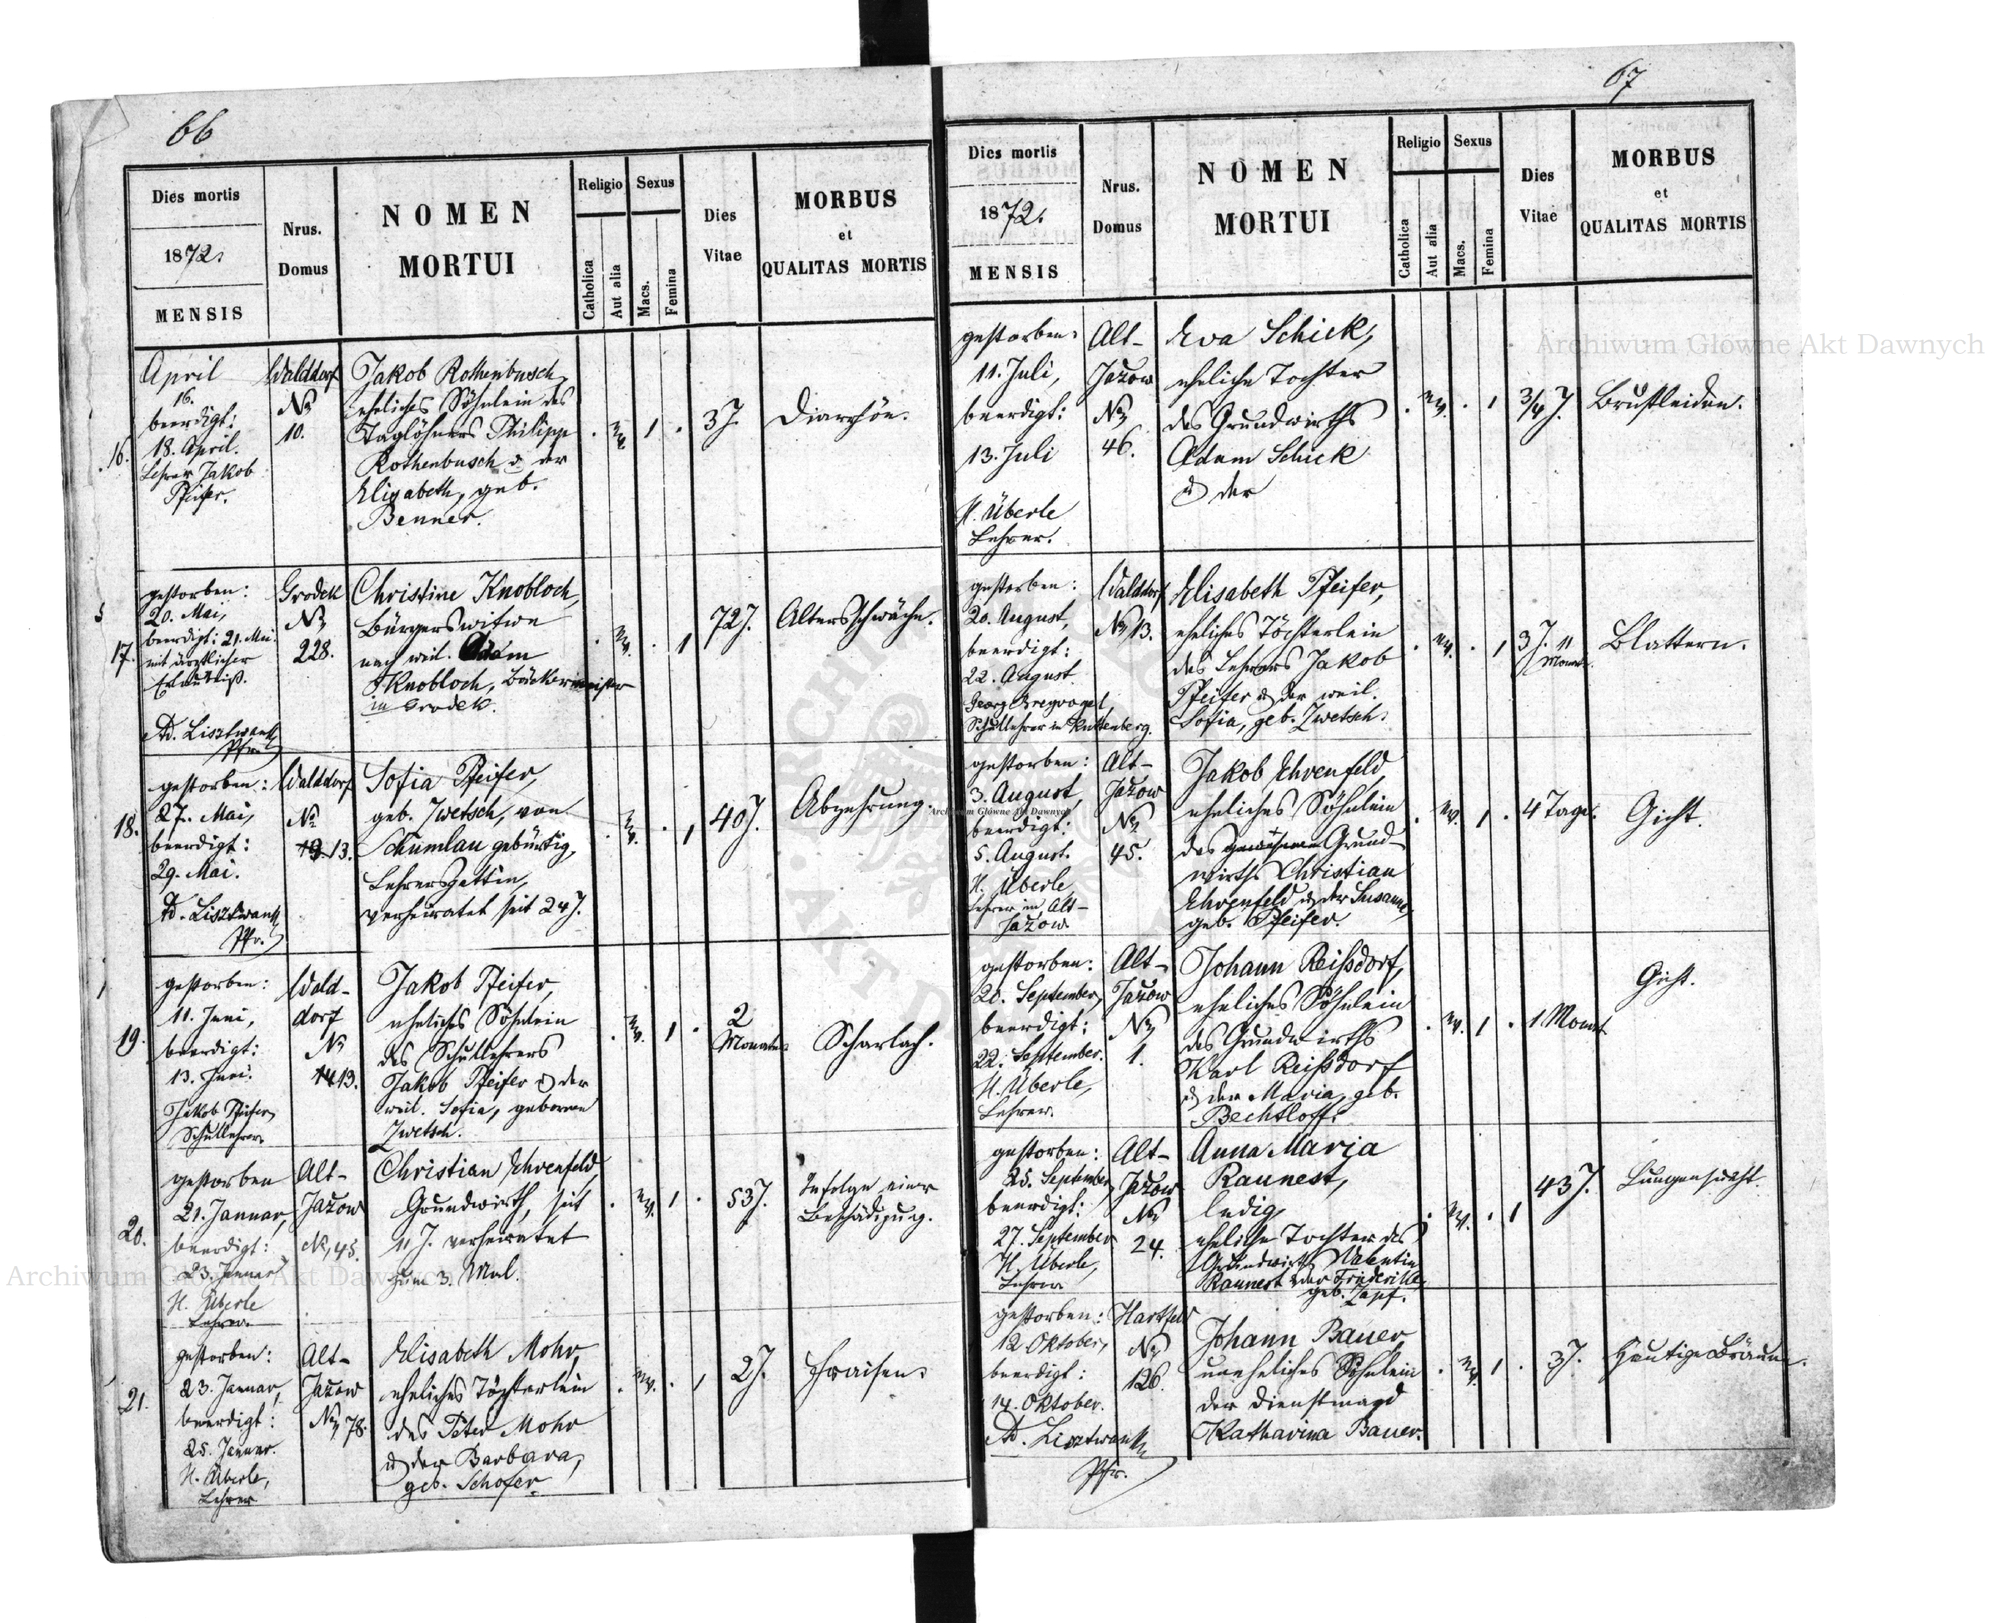 66
Dies mortis
1872.
MENSIS
Nrus.
Domus
NOMEN
MORTUI
Religio
Catholica
Aut alia
Sexus
Macs.
Femina
Dies
Vitae
MORBUS
et
QUALITAS MORTIS
16.
April
16.
beerdigt:
18. April.
Lehrer Jakob
Pfeifer.
Walddorf
No
10.
Jakob Rothenbusch,
eheliches Söhnlein des
Taglöhners Philipp
Rothenbusch u. der
Elisabeth, geb.
Benner.
1
3 J.
Diarrhöe.
17.
gestorben:
20. Mai,
beerdigt: 21. Mai
mit ärztlicher
Erlaubniß.
Ad. Lisztwank
Pfr.
Grodek
No
228.
Christine Knobloch,
Bürgerswitwe
nach weil. Adam
Knobloch, Bäckermeister
in Grodek.
1
72 J.
Altersschwäche.
18.
gestorben:
27. Mai,
beerdigt:
29. Mai.
Ad. Lisztwank
Pfr.
Walddorf
No
13.
Sofia Pfeifer,
geb. Zwetsch, von
Schumlau gebürtig,
Lehrersgattin,
verheiratet seit 24 J.
1
40 J.
Abzehrung.
19.
gestorben:
11. Juni,
beerdigt:
13. Juni.
Jakob Pfeifer,
Schullehrer.
Wald-
dorf
No
13.
Jakob Pfeifer,
eheliches Söhnlein
des Schullehrers
Jakob Pfeifer u. der
weil. Sofia, geborene
Zwetsch.
1
2
Monate
Scharlach.
20.
gestorben
21. Januar,
beerdigt:
23. Januar
H. Überle
Lehrer.
Alt-
Jazow
No 45.
Christian Ehrenfeld,
Grundwirth, seit
11 J. verheiratet
zum 3. Mal.
1
53 J.
Infolge einer
Beschädigung.
21.
gestorben:
23. Januar,
beerdigt:
25. Januar.
H. Überle,
Lehrer
Alt-
Jazow
No 78.
Elisabeth Mohr,
eheliches Töchterlein
des Peter Mohr
u. der Barbara,
geb. Schofer.
1
2 J.
Fraisen.
67
Dies mortis
1872.
MENSIS
Nrus.
Domus
NOMEN
MORTUI
Religio
Catholica
Aut alia
Sexus
Macs.
Femina
Dies
Vitae
MORBUS
et
QUALITAS MORTIS
gestorben:
11. Juli,
beerdigt:
13. Juli
H. Überle
Lehrer.
Alt-
Jazow
No
46.
Eva Schick,
eheliche Tochter
des Grundwirths
Adam Schick
u. der
1
3/4 J.
Brustleiden.
gestorben:
20. August,
beerdigt:
22. August
Georg
Schullehrer in Kuttenberg.
Walddorf
No 13.
Elisabeth Pfeifer,
eheliches Töchterlein
des Lehrers Jakob
Pfeifer u. der weil.
Sofia, geb. Zwetsch.
1
3 J. 11
Monate
Blattern.
gestorben:
3. August,
beerdigt:
5. August.
H. Überle
Lehrer in Alt-
Jazow
Alt-
Jazow
No
45.
Jakob Ehrenfeld,
eheliches Söhnlein
des Grund-
wirths Christian
Ehrenfeld u. der Susanne,
geb. Pfeifer.
1
4 Tage.
Gicht.
gestorben:
20. September,
beerdigt:
22. September.
H. Überle,
Lehrer.
Alt-
Jazow
No
1.
Johann Reißdorf,
eheliches Söhnlein
des Grundwirths
Karl Reißdorf
u. der Maria, geb.
Bechtloff.
1
1 Monat
Gicht.
gestorben:
25. September,
beerdigt:
27. September
H. Überle,
Lehrer
Alt-
Jazow
No
24.
Anna Maria
Raunest,
ledig,
eheliche Tochter des
Grundwirths Valentin
Raunest u. der Friderike,
geb. Zapf.
1
43 J.
Lungensucht.
gestorben:
12 Oktober,
beerdigt:
14. Oktober.
Ad. Lisztwank
Pfr.
Hartfeld
No
126.
Johann Bauer,
uneheliches Söhnlein
der Dienstmagd
Katharina Bauer.
1
3 J.
Häutige Bräune.
Archiwum Główne Akt Dawnych
Archiwum Główne Akt Dawnych
Archiwum Główne Akt Dawnych